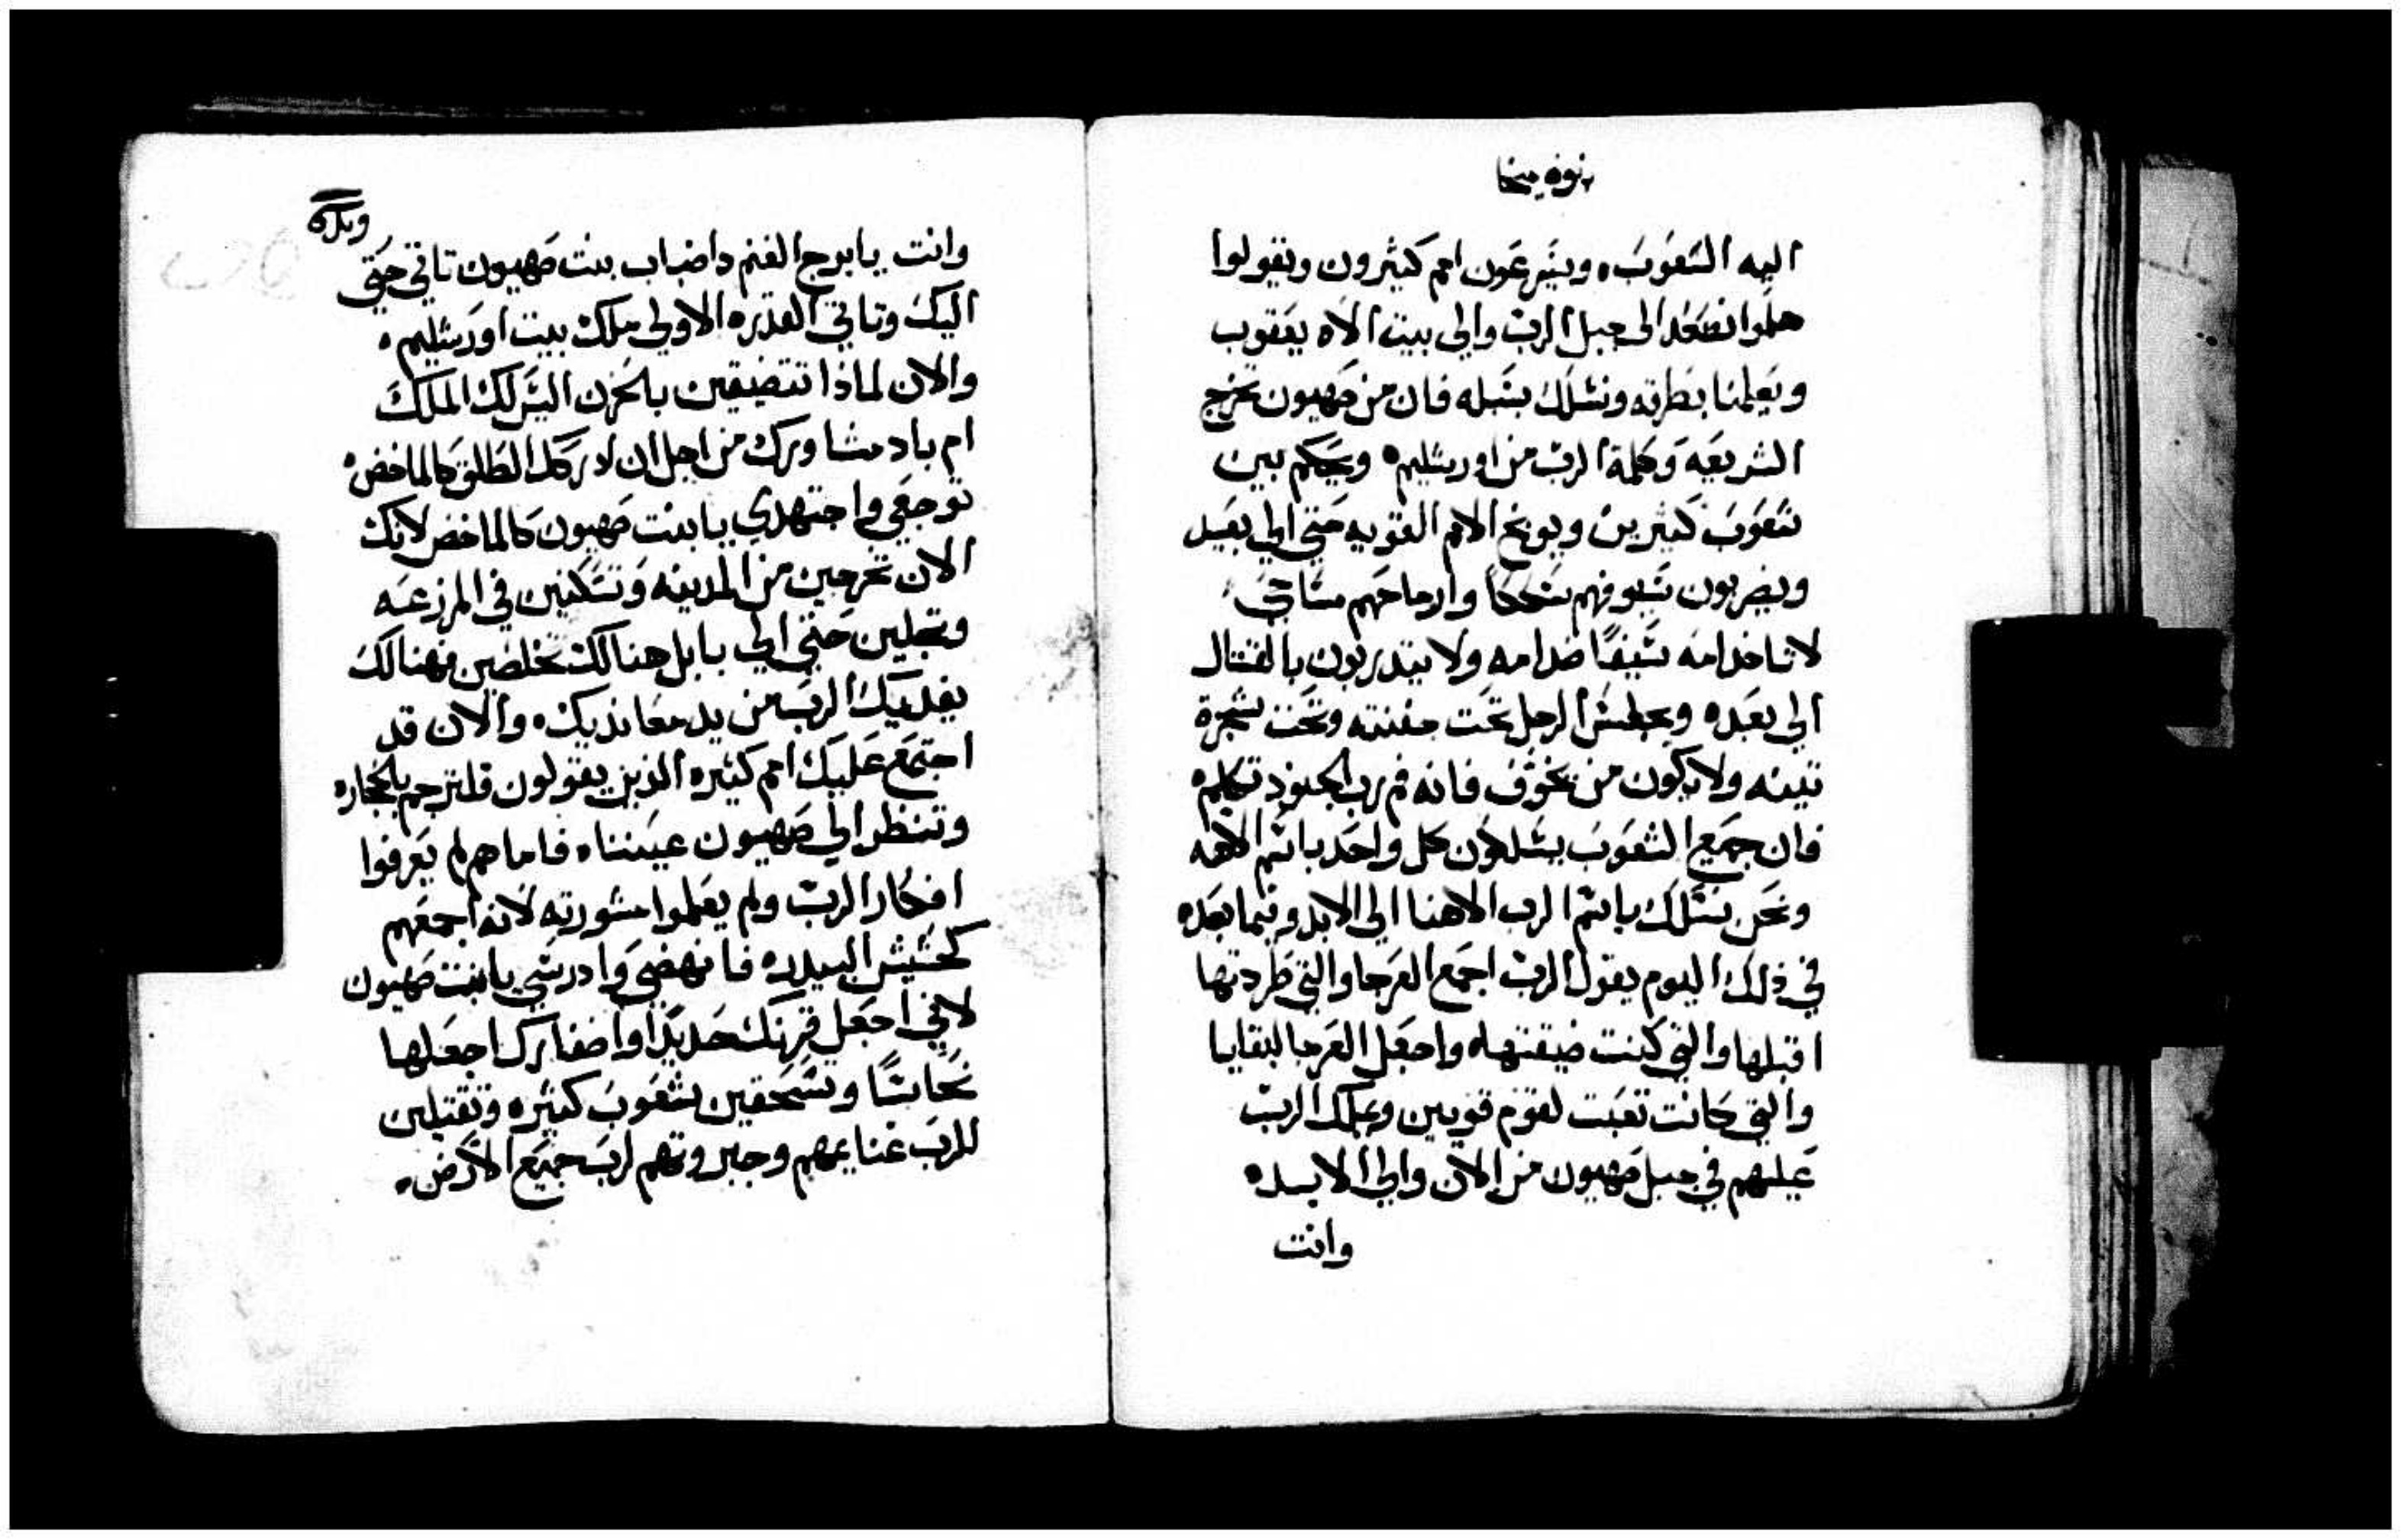 نبوة ميخا
اليه الشعوب، ويسرعون امم كثيرون ويقولوا
هلموا نصعد الى جبل الرب والي بيت الاه يعقوب
ويعلمنا بطرقه ونسلك بسبله فان من صهيون تخرج
الشريعه وكلمة الرب من اورشليم ه ويحكم بين
شعوب كثيرين ويوبخ الامم القويه حتي الي بعيد
ويضربون سيوفهم سككا وارماحهم مناجي
لا تاخذ امه سيفا ضد امه ولا يتدربون بالقتال
الي بعده ويجلس الرجل تحت جفنته وتحت شجرة
تينه ولا يكون من يخوف فانه فم رب الجنود تكلم ه
فان جميع الشعوب يسلكون كل واحد باسم الاهه
ونحن نسلك باسم الرب الاهنا الي الابد وفيما بعده
في ذلك اليوم يقول الرب اجمع العرجا والتي طردتها
اقبلها والتي كنت ضيقتها ه واجعل العرجا لبقايا
والتي كانت تعبت لقوم قويين ويملك الرب
عليهم في جبل صهيون من الان والي الابد ه
وانت
وانت يا برج الغنم داضباب بنت صهيون تاتي حتي
اليك وتاتي القدره الاولي ملك بيت اورشليم ه
والان لماذا تتضيقين بالحزن اليس لك الملك
ام باد مشاورك من اجل ان ادركك الطلق كالماخض ه
توجعي واجتهدي يا بنت صهيون كالماخض لانك
الان تخرجين من المدينه وتسكنين في المزرعه
وتجلين حتي الي بابل هنالك تخلصين فهنالك
يفديك الرب من يد معانديك ه والان قد
اجتمع عليك امم كثيره الذين يقولون فلترجم بالحجاره
وتنظر الي صهيون عيننا ه فاما هم لم يعرفوا
افكار الرب ولم يعلموا مشورته لانه اجمعهم
كحشيش البيدر ه فانهضي وادرسي يا بنت صهيون
لاني اجعل قرنك حديدا واضفارك اجعلها
نحاسا وتسحقين شعوب كثيره وتقتلين
للرب غنايمهم وجبروتهم لرب جميع الارض ه